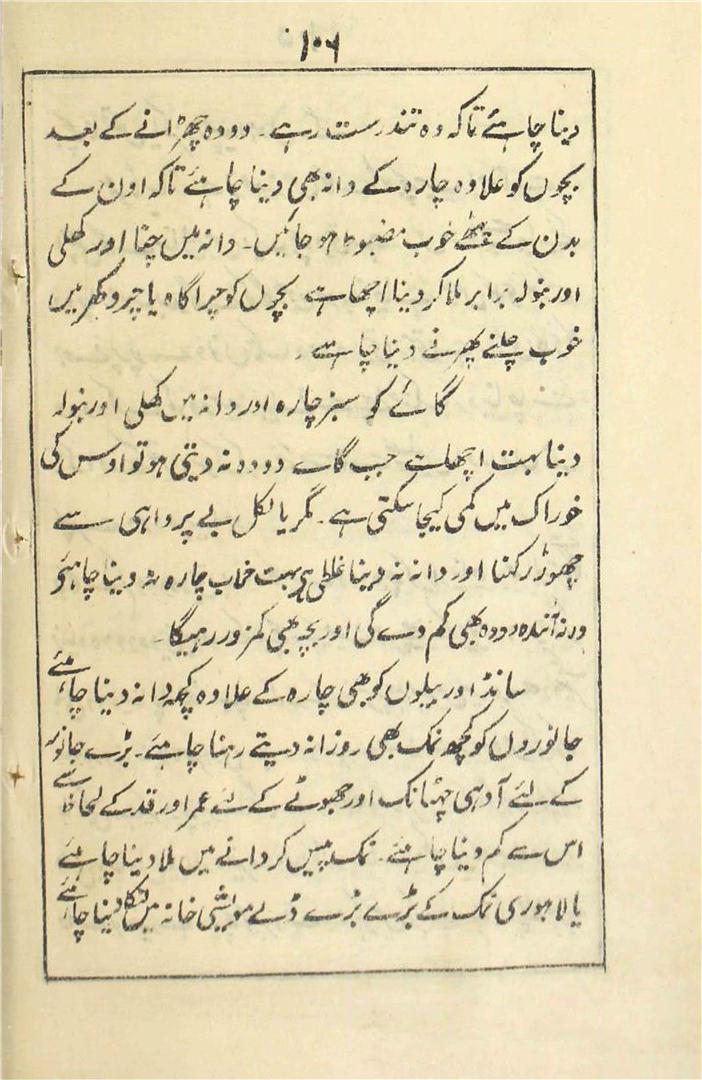 ۱۰۶
دینا چاہئے تاکہ وہ تندرست رہے۔ دودہ چھڑانے کے بعد
بچوں کو علاوہ چارہ کے دانہ بھی دینا چاہئے تاکہ اون کے
بدن کے پٹھے خوب مضبوط ہو جائیں۔ دانہ میں چنا اور کھلی
اور بنولہ برابر ملا کر دینا اچھا ہے بچوں کو چراگاہ یا چروکھر میں
خوب چلنے پھرنے دینا چاہئے۔
گائے کو سبز چارہ اور دانہ میں کھلی اور بنولہ
دینا بہت اچھا ہے جب گائے دودہ نہ دیتی ہو تو اوس کی
خوراک میں کمی کیجا سکتی ہے۔ مگر بالکل بے پرواہی سے
چھوڑ رکھنا اور دانہ نہ دینا غلطی ہے بہت خراب چارہ نہ دینا چاہئے
ورنہ آئندہ دودہ بھی کم دے گی اور بچہ بھی کمزور رہیگا۔
سانڈ اور بیلوں کو بھی چارہ کے علاوہ کچھ دانہ دینا چاہئے
جانوروں کو کچھ نمک بھی روزانہ دیتے رہنا چاہئے۔ بڑے جانور
کے لئے آدہی چھٹانک اور چھوٹے کے لئے عمر اور قد کے لحاظ سے
اس سے کم دینا چاہئے۔ نمک پیس کر دانے میں ملا دینا چاہئے
یا لاہوری نمک کے بڑے بڑے ڈلے مویشی خانہ میں لٹکا دینا چاہئے